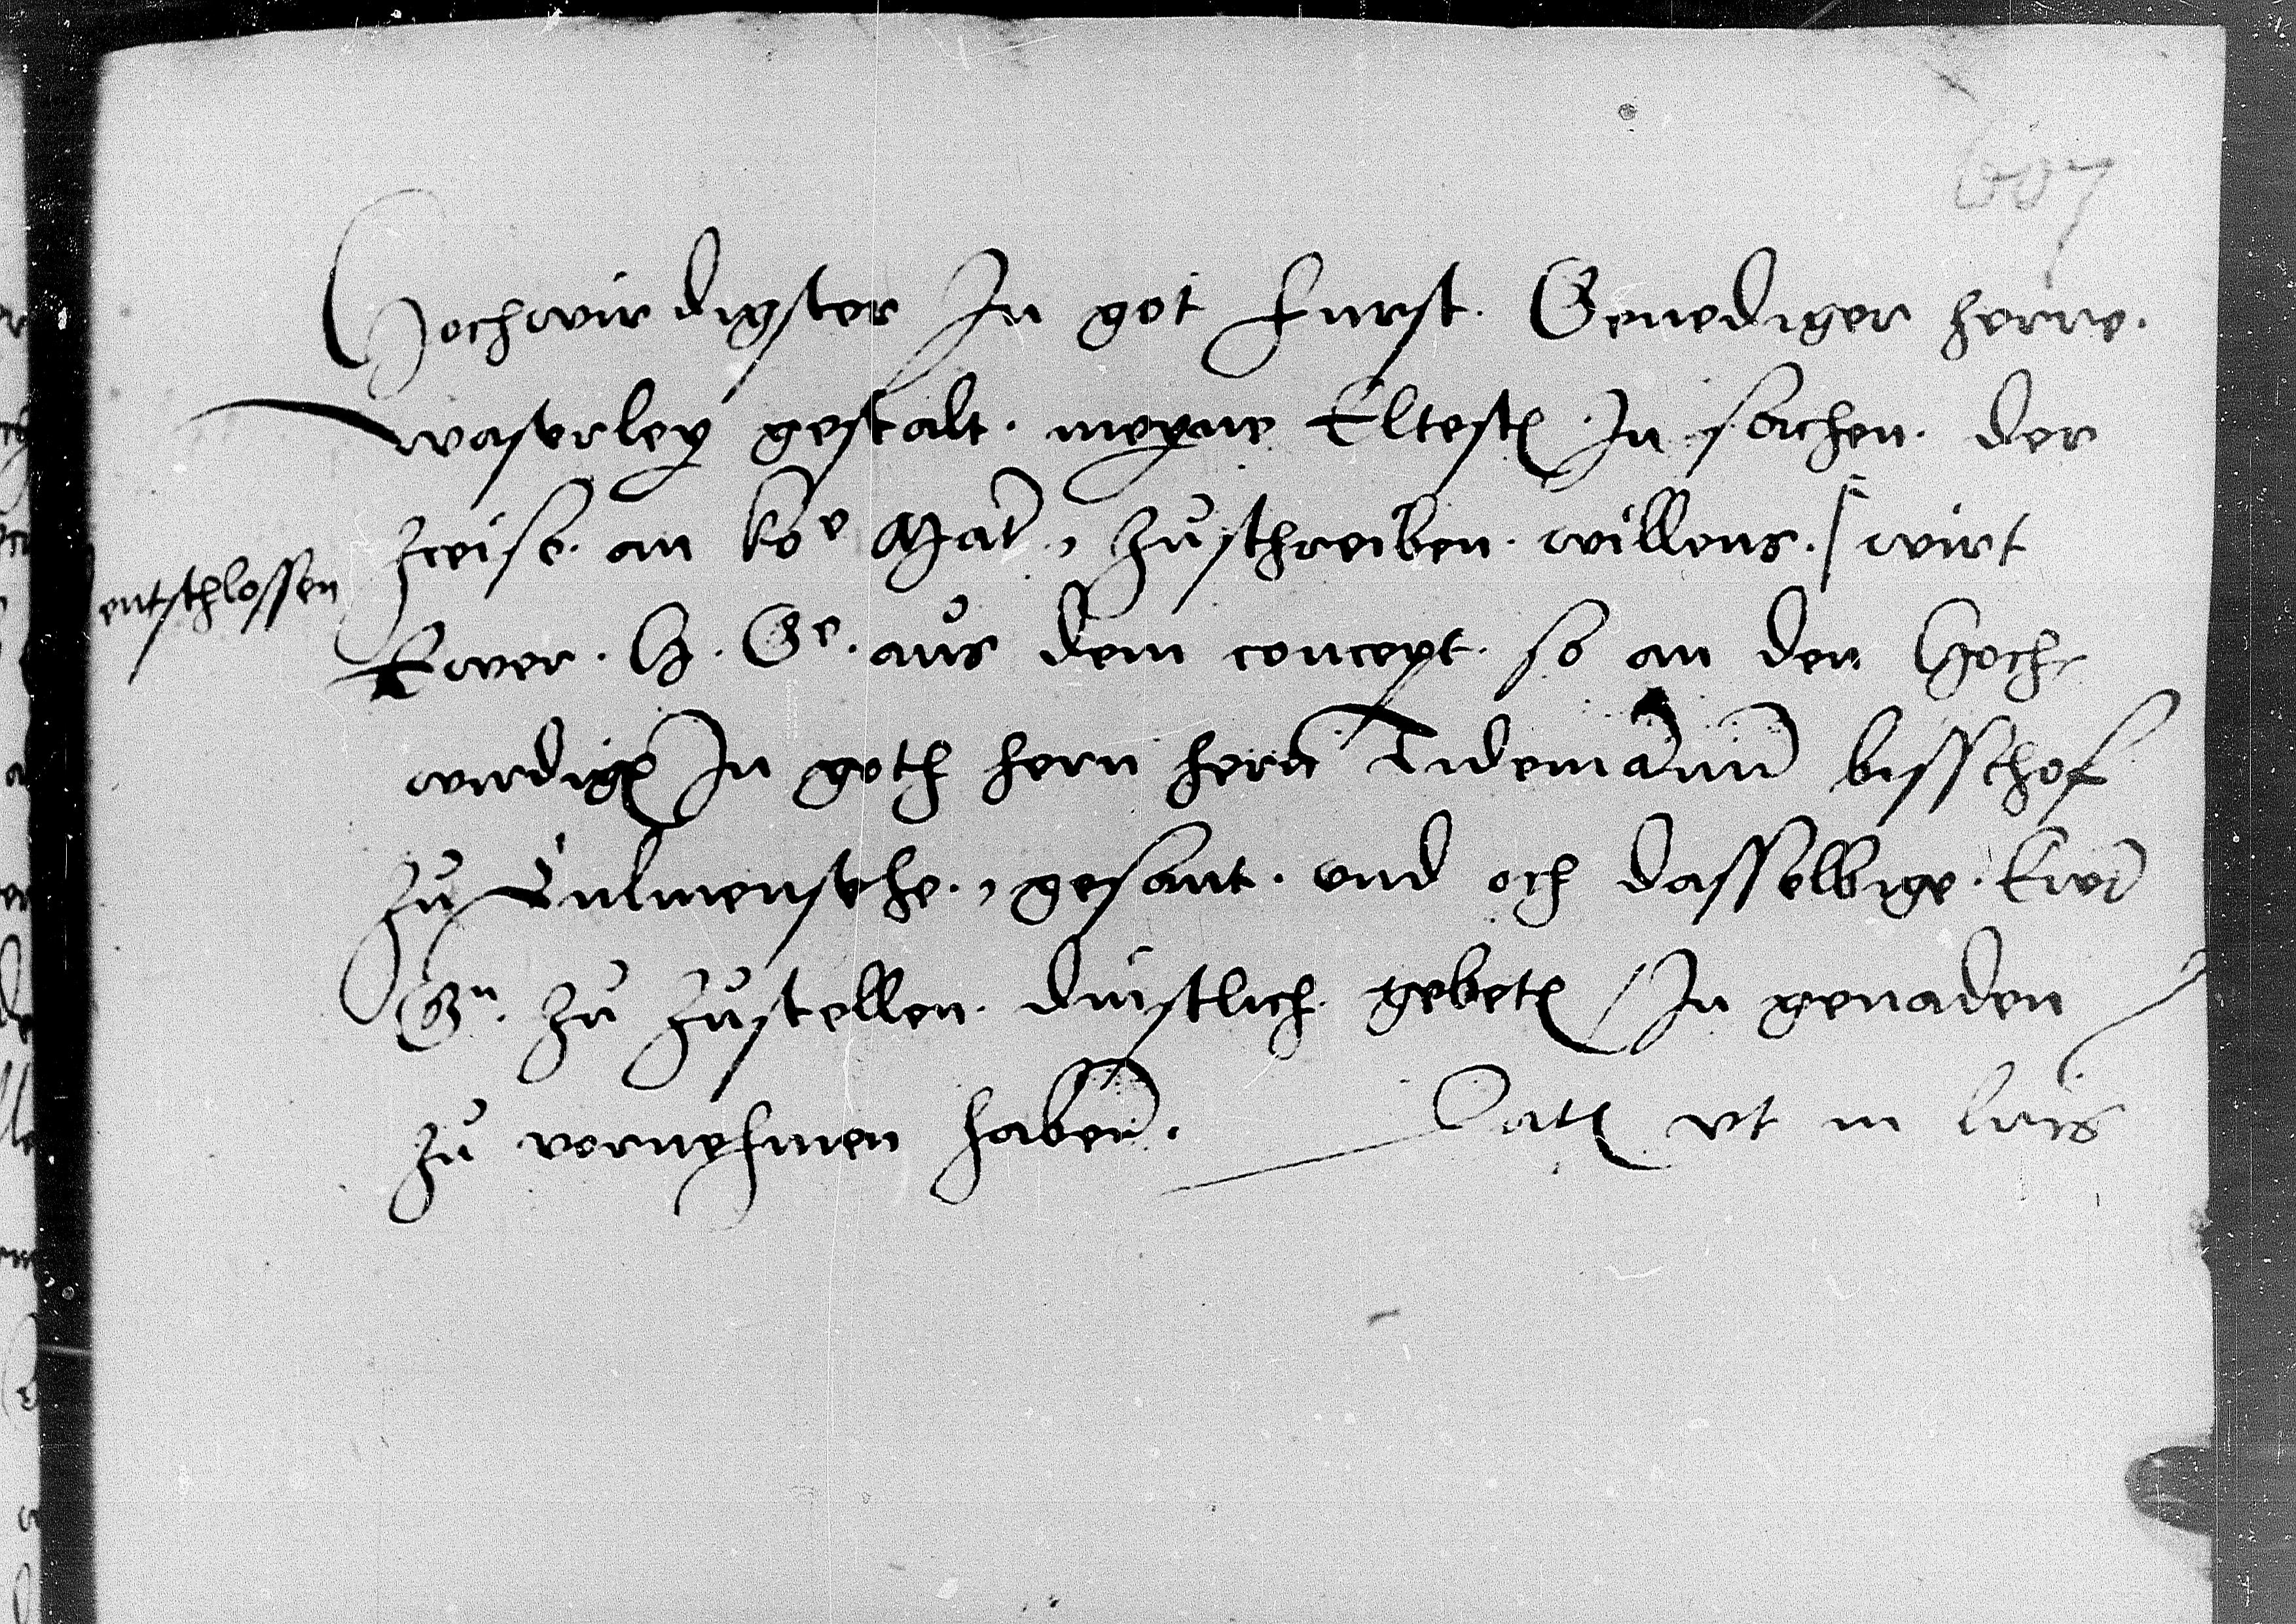 607
Hochwirdigster In got furst. Genediger herre.
waserley gestalt. meyne Eltest In sachen. der
Zceise. an koe Mat., zuschreiben. willens. / wirt
entschlossen
Ewer. H. Ge. aus dem concept. so an den Hoch
wirdig In goth hern hern Tidemann bisschof
zu Culmensehe., gesant. vnd och dasselbige. Ewr
Gn. zu zustellen. dinstlich gebet In genaden
zu vornehmen haben. Dat vt in lris